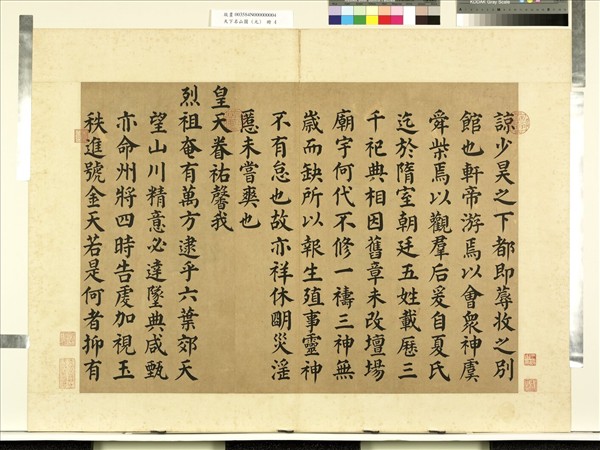 故畫 003584N000000004
KODAK Gray Scale
諒少昊之下都即蓐收之別
館也軒帝游焉以會衆神虞
舜柴焉以觀羣后爰自夏氏
迄於隋室朝廷五姓載歷三
千祀典相因舊章未改壇場
廟宇何代不修一禱三神無
歲而缺所以報生殖事靈神
不有怠也故亦祥休朙災淫
慝未嘗爽也
皇天眷祐馨我
烈祖奄有萬方逮乎六葉郊天
望山川精意必達墜典咸甄
亦命州將四時告虔加視玉
秩進號金天若是何者抑有